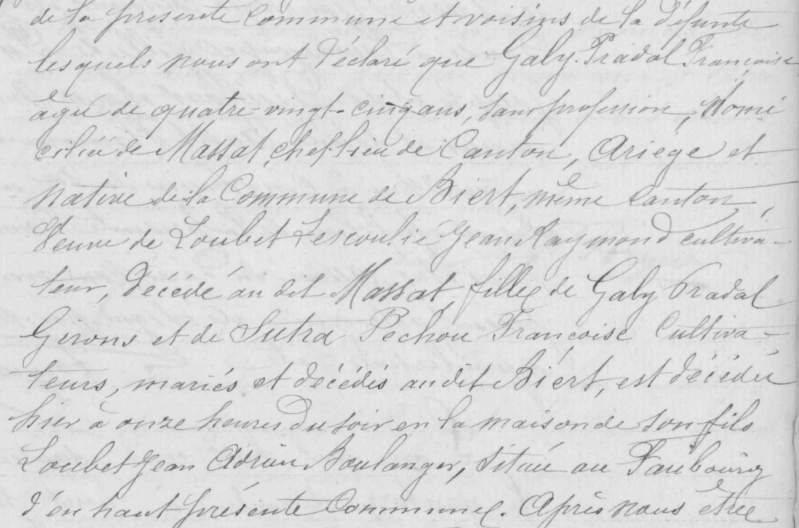 de la présente Commune et voisins de la défunte
lesquels nous ont déclaré que Galy-Pradal Françoise
âgée de quatre-vingt-cinq ans, sans profession, domi
ciliée de Massat, chef-lieu de Canton, Ariège et
native de la Commune de Biert, même Canton,
Veuve de Loubet Lescoulié Jean Raymond cultiva-
teur, décédé au dit Massat, fille de Galy Pradal
Girons et de Sutra Pechou Françoise Cultiva-
teurs, mariés et décédés au dit Biert, est décédée
hier à onze heures du soir en la maison de son fils
Loubet Jean Adrien Boulanger, située au Faubourg
d'en haut présente Commune. Après nous être